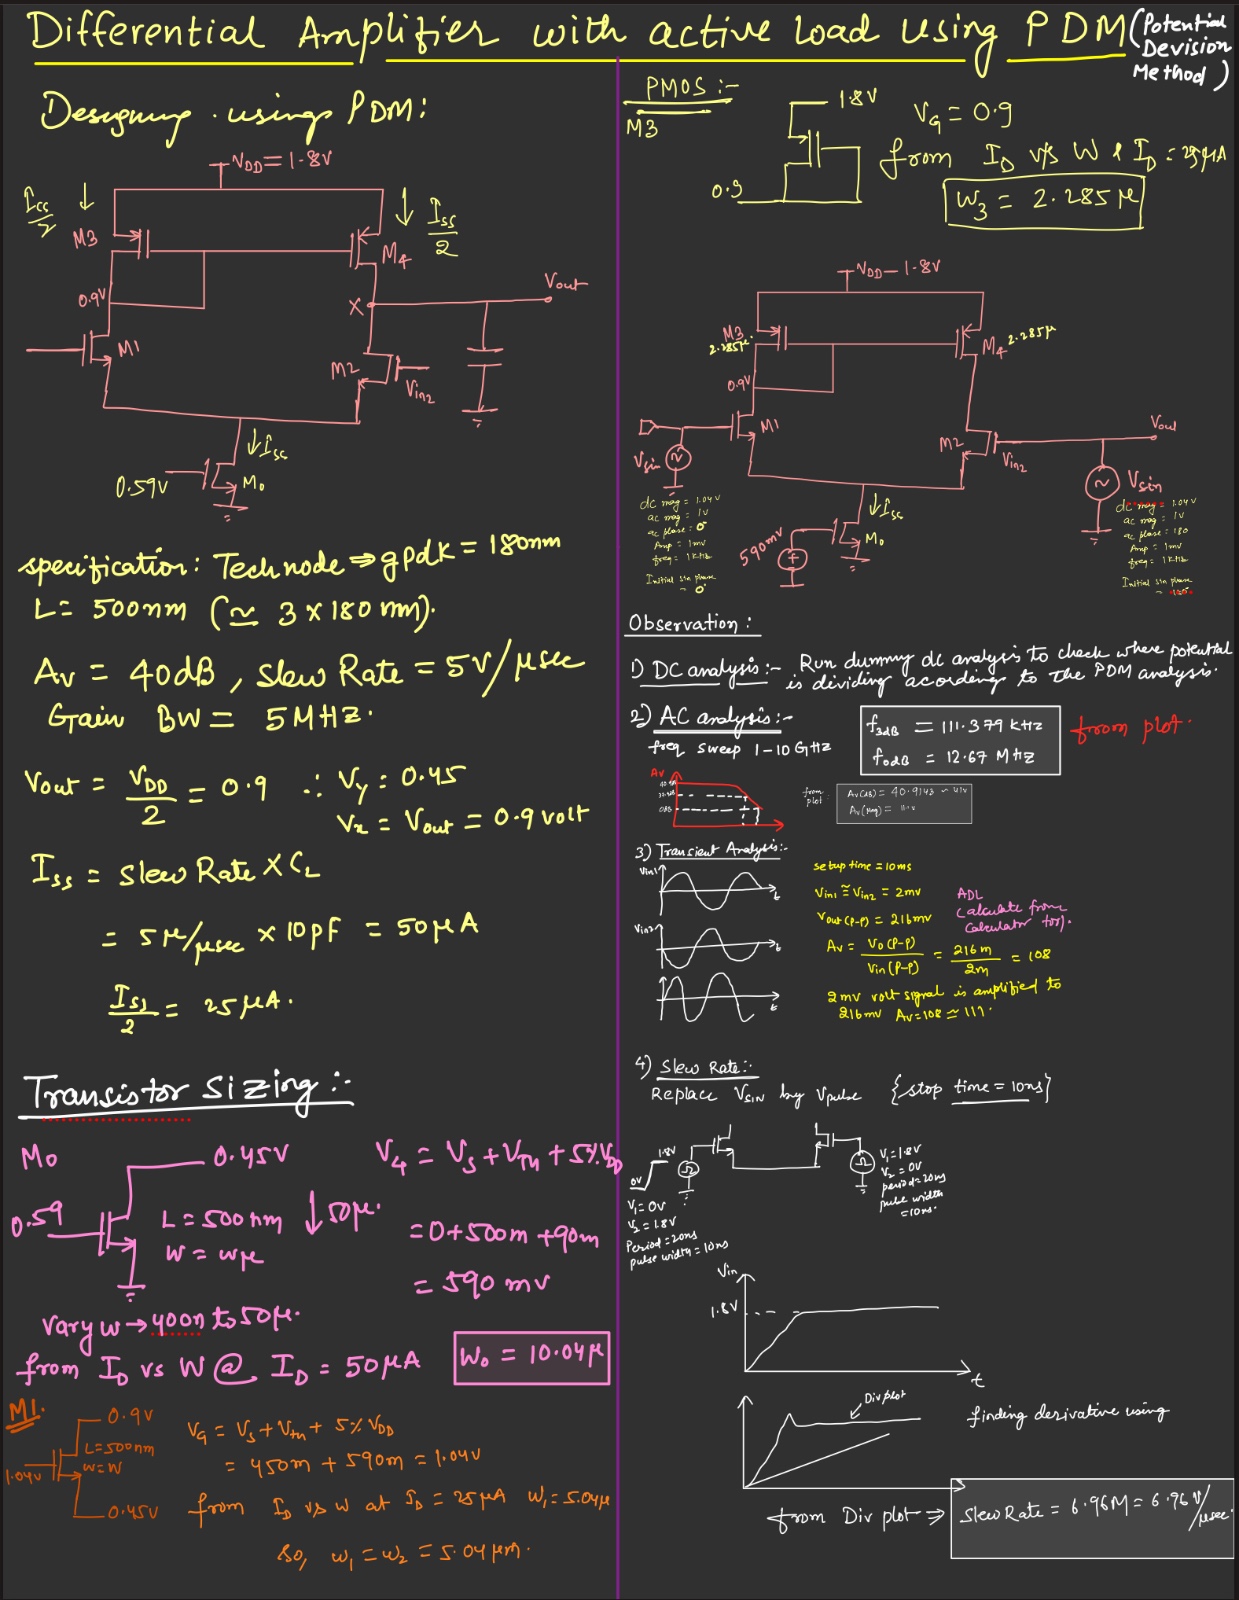 Differential Amplifier with active load using PDM (Potential
Devision
Method)
Designing using PDM:
VDD = 1.8V
Iss/2
Iss/2
M3
M4
0.9V
X
Vout
M1
M2
Vin2
Iss
0.59V
M0
specification: Tech node ⇒ gpdk = 180nm
L = 500nm (≃ 3 x 180 nm).
Av = 40dB, Slew Rate = 5V/μsec
Gain BW = 5MHz.
Vout = VDD/2 = 0.9 ∴ Vy = 0.45
Vx = Vout = 0.9 volt
Iss = Slew Rate X CL
= 5μ/μsec x 10pF = 50μA
Iss/2 = 25μA.
Transistor Sizing :-
M0
0.45V
0.59
L = 500nm
W = wμ
50μ.
VG = VS + VTH + 5% VDD
= 0 + 500m + 90m
= 590 mv
Vary w → 400n to 50μ.
from ID vs W @ ID = 50μA
W0 = 10.04μ
M1.
0.9V
L=500nm
W=W
1.04V
0.45V
VG = VS + Vtn + 5% VDD
= 450m + 590m = 1.04V
from ID vs W at ID = 25μA W1 = 5.04μ
So, W1 = W2 = 5.04μm.
PMOS :-
M3
1.8V
0.9
VG = 0.9
from ID v/s W & ID = 25μA
W3 = 2.285μ
VDD - 1.8V
M3
2.285μ
M4
2.285μ
0.9V
M1
M2
Vin2
Vout
Vsin
Vsin
dc mag = 1.04V
ac mag = 1V
ac phase = 0
Amp = 1mv
freq = 1KHz
Initial sin phase
= 0
Iss
M0
590mV
dc mag = 1.04V
ac mag = 1V
ac phase = 180
Amp = 1mv
freq = 1KHz
Initial sin phase
= 180
Observation :
1) DC analysis :- Run dummy dc analysis to check where potential
is dividing acording to the PDM analysis.
2) AC analysis :-
freq sweep 1-10GHz
f3dB = 111.379 KHz
f0dB = 12.67 MHz
from plot.
Av
from
plot
Av(dB) = 40.9143
Av(Mag) =
3) Transient Analysis :-
Vin1
t
Vin2
t
t
setup time = 10ms
Vin1 ≅ Vin2 = 2mv
Vout (P-P) = 216mv
Av = Vo (P-P)/Vin (P-P) = 216m/2m = 108
ADL
Calculate from
Calculator tool.
2mv volt signal is amplified to
216mv Av = 108 ≃ 111.
4) Slew Rate :-
Replace Vsin by Vpulse {stop time = 10ns}
1.8V
0V
V1 = 0V
V2 = 1.8V
Period = 20ns
pulse width = 10ns
V1 = 1.8V
V2 = 0V
period = 20ns
pulse width
= 10ns.
Vin
1.8V
t
Div plot
finding derivative using
from Div plot ⇒
Slew Rate = 6.96M = 6.96 V/μsec.